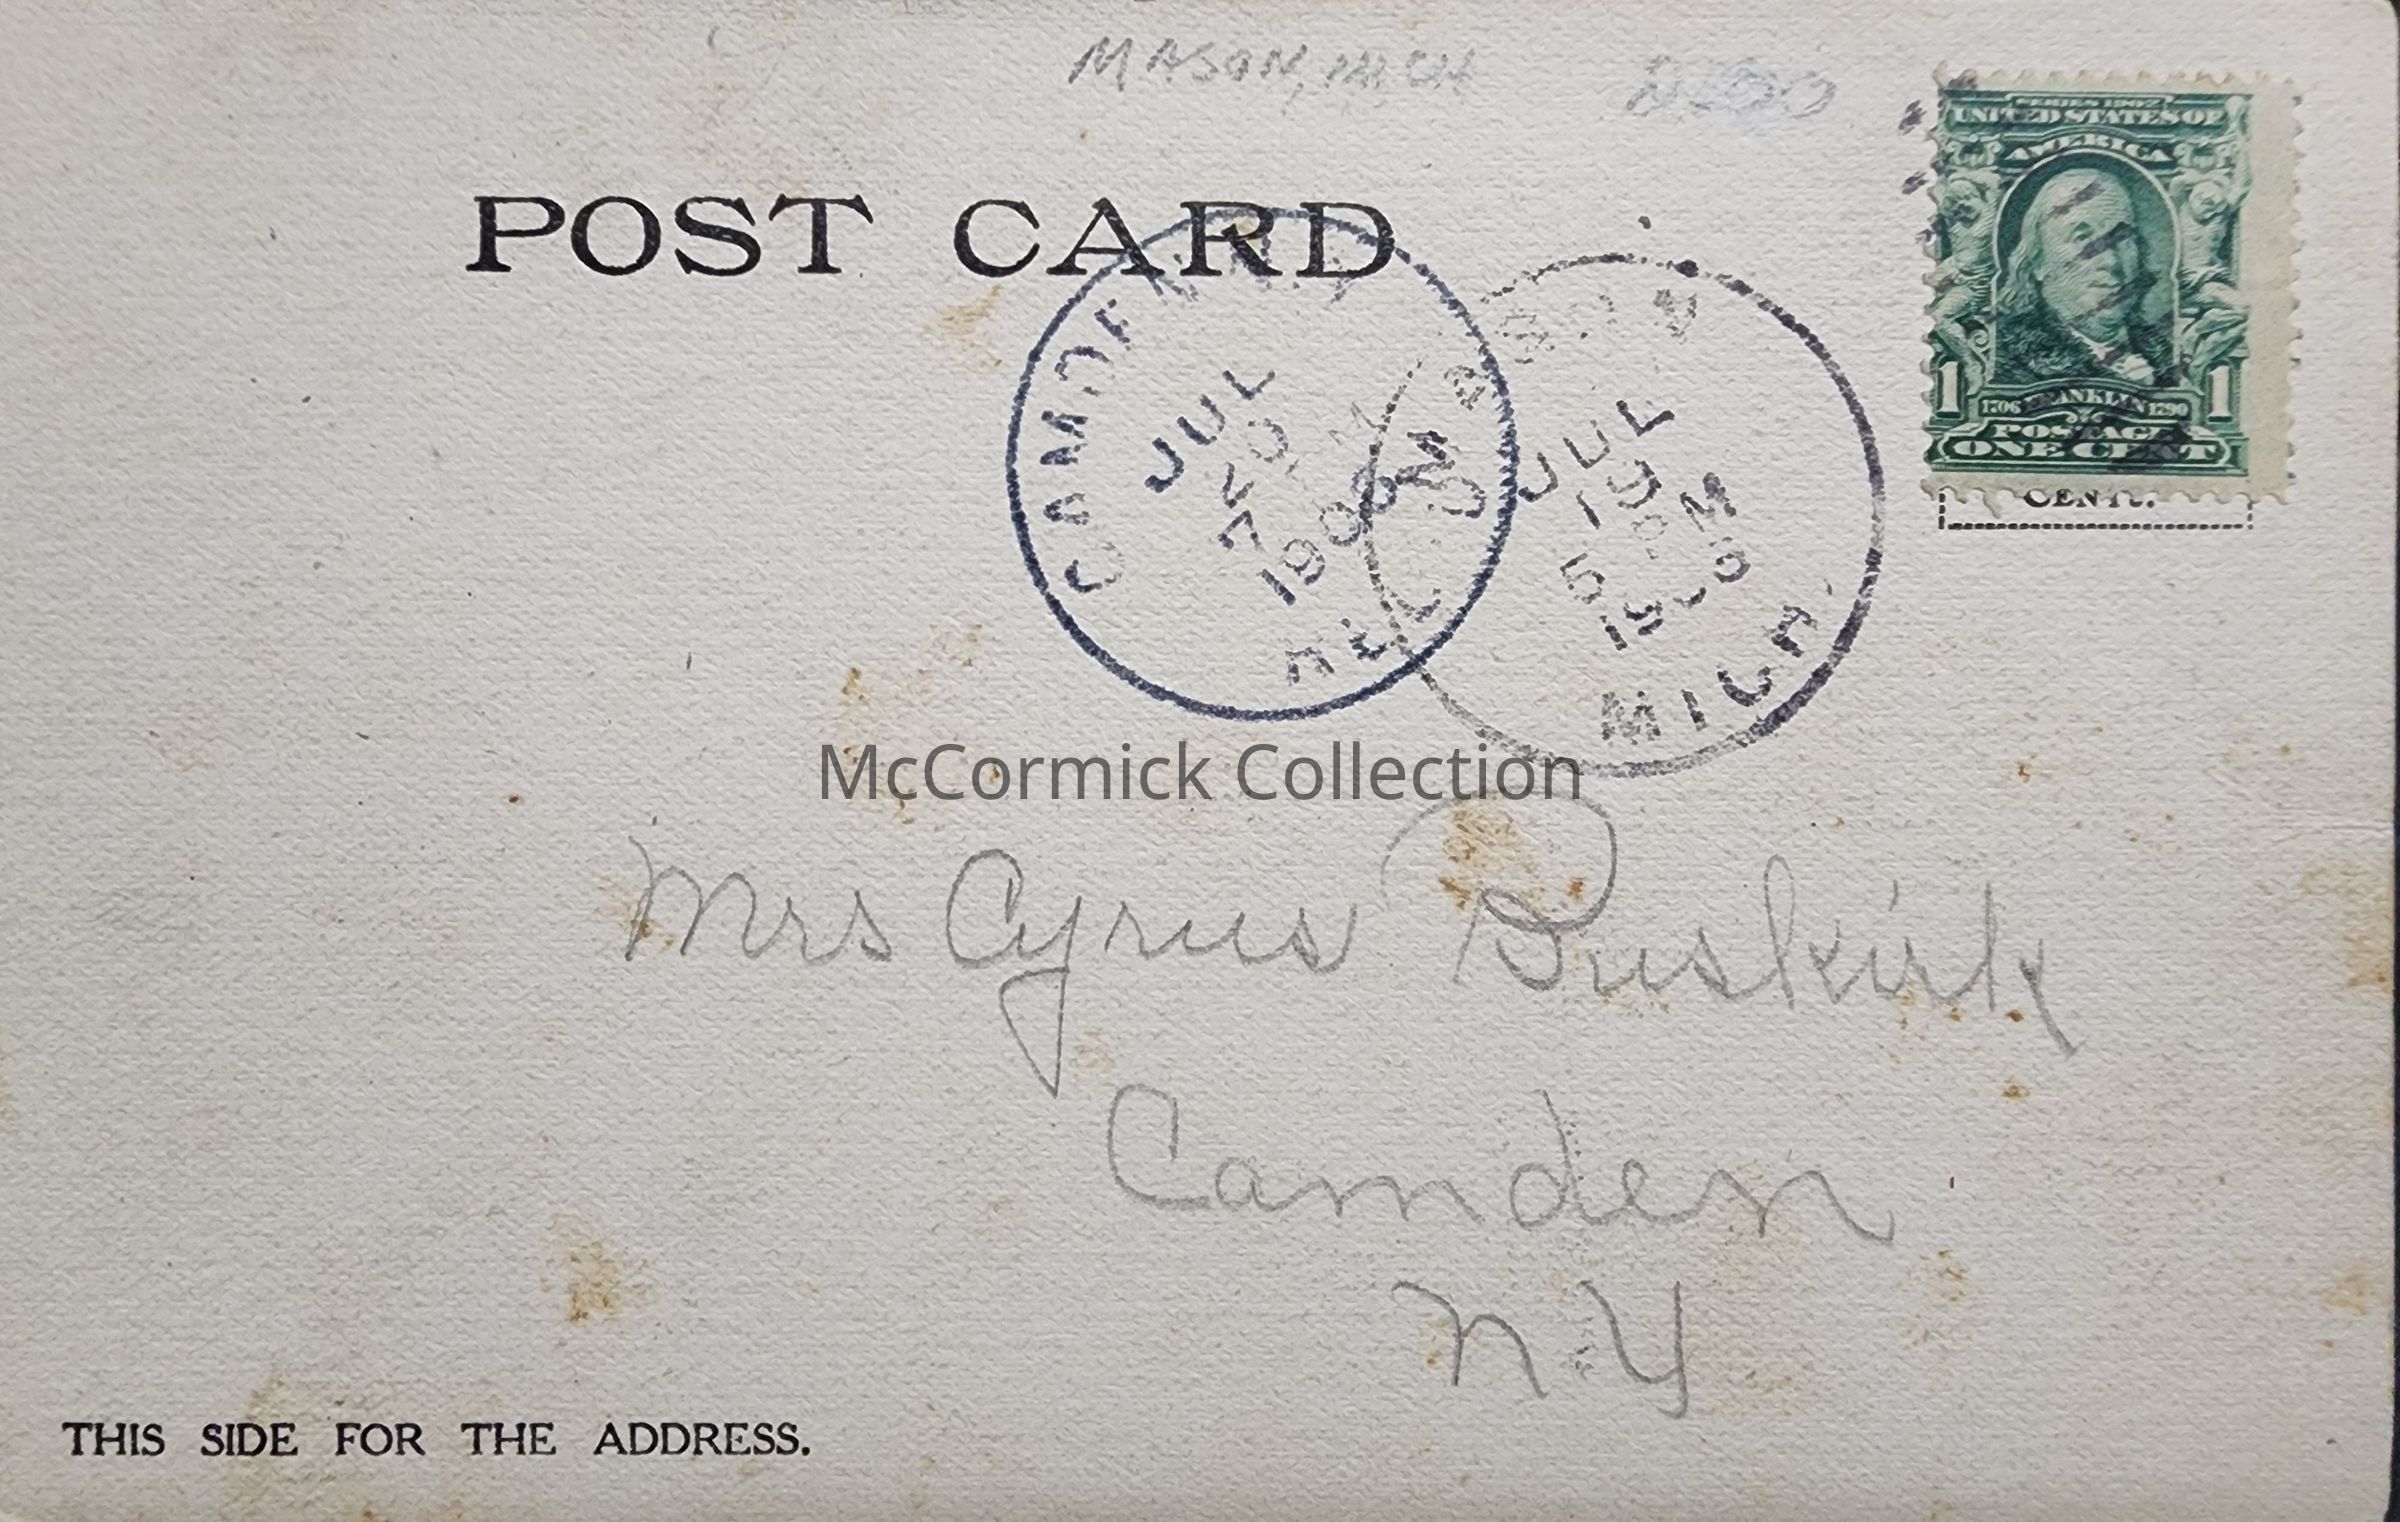 MASON, MICH
SERIES 1902
UNITED STATES OF
AMERICA
1 1
1706 FRANKLIN 1790
POSTAGE
ONE CENT
CENT.
POST CARD
CAMDEN N.Y.
JUL
20
7
1906
REC'D
MASON
JUL
19
5 PM
19
MICH.
McCormick Collection
Mrs Cyrus Buskirk
Camden
N.Y.
THIS SIDE FOR THE ADDRESS.